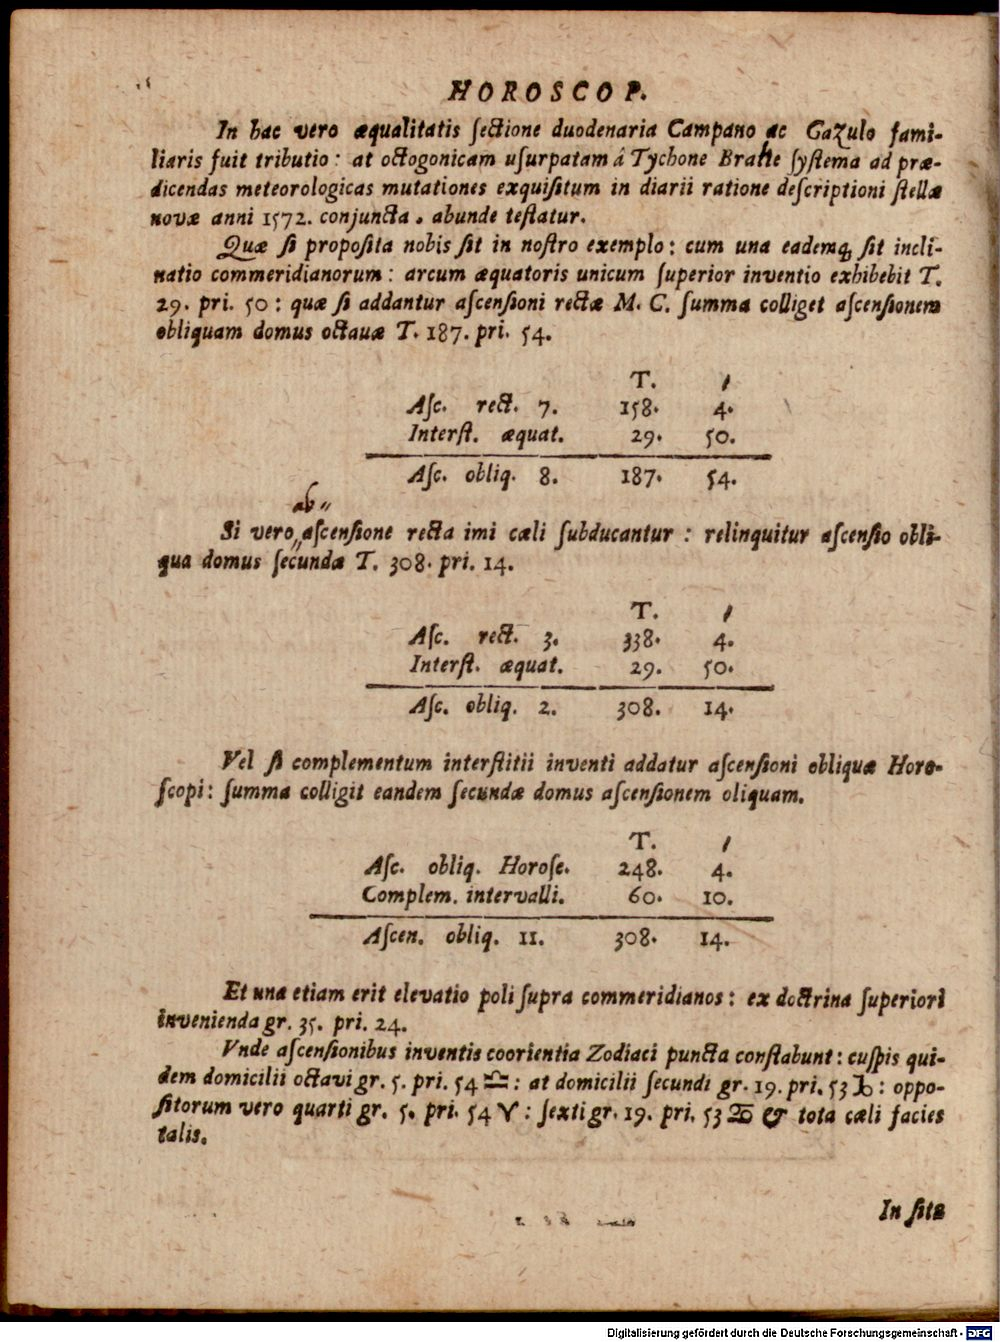 HOROSCOP.
In hac vero æqualitatis ſectione duodenaria Campano ac Gazulo fami-
liaris fuit tributio: at octogonicam uſurpatam â Tychone Brahe ſyſtema ad præ-
dicendas meteorologicas mutationes exquiſitum in diarii ratione deſcriptioni ſtellæ
novæ anni 1572. conjuncta. abunde teſtatur.
Quæ ſi propoſita nobis ſit in noſtro exemplo: cum una eademq; ſit incli-
natio commeridianorum: arcum æquatoris unicum ſuperior inventio exhibebit T.
29. pri. 50: quæ ſi addantur aſcenſioni rectæ M. C. ſumma colliget aſcenſionem
obliquam domus octauæ T. 187. pri. 54.
T. ′
Aſc. rect. 7. 158. 4.
Interſt. æquat. 29. 50.
Aſc. obliq. 8. 187. 54.
ab
Si vero aſcenſione recta imi cæli ſubducantur: relinquitur aſcenſio obli-
qua domus ſecundæ T. 308. pri. 14.
T. ′
Aſc. rect. 3. 338. 4.
Interſt. æquat. 29. 50.
Aſc. obliq. 2. 308. 14.
Vel ſi complementum interſtitii inventi addatur aſcenſioni obliquæ Horo-
ſcopi: ſumma colligit eandem ſecundæ domus aſcenſionem oliquam.
T. ′
Aſc. obliq. Horoſc. 248. 4.
Complem. intervalli. 60. 10.
Aſcen. obliq. 11. 308. 14.
Et una etiam erit elevatio poli ſupra commeridianos: ex doctrina ſuperiori
invenienda gr. 35. pri. 24.
Vnde aſcenſionibus inventis coorientia Zodiaci puncta conſtabunt: cuſpis qui-
dem domicilii octavi gr. 5. pri. 54 ♎: at domicilii ſecundi gr. 19. pri. 53 ♑: oppo-
ſitorum vero quarti gr. 5. pri. 54 ♈: ſexti gr. 19. pri. 53 ♋ & tota cæli facies
talis.
In ſitu
Digitalisierung gefördert durch die Deutsche Forschungsgemeinschaft - DFG